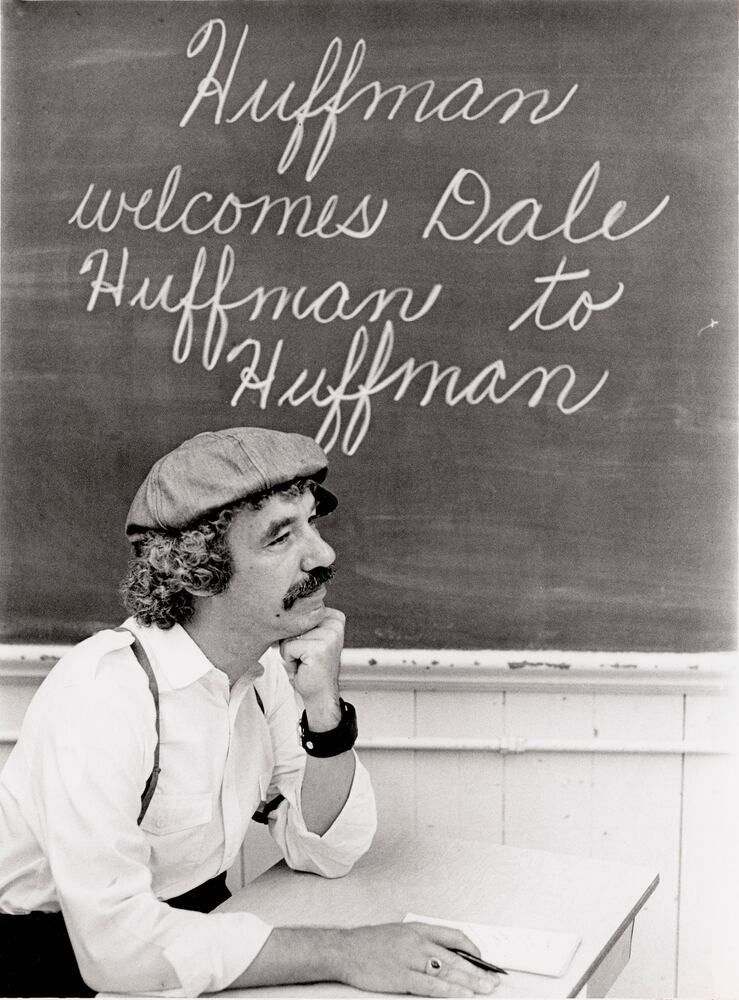 Huffman
welcomes Dale
Huffman to
Huffman